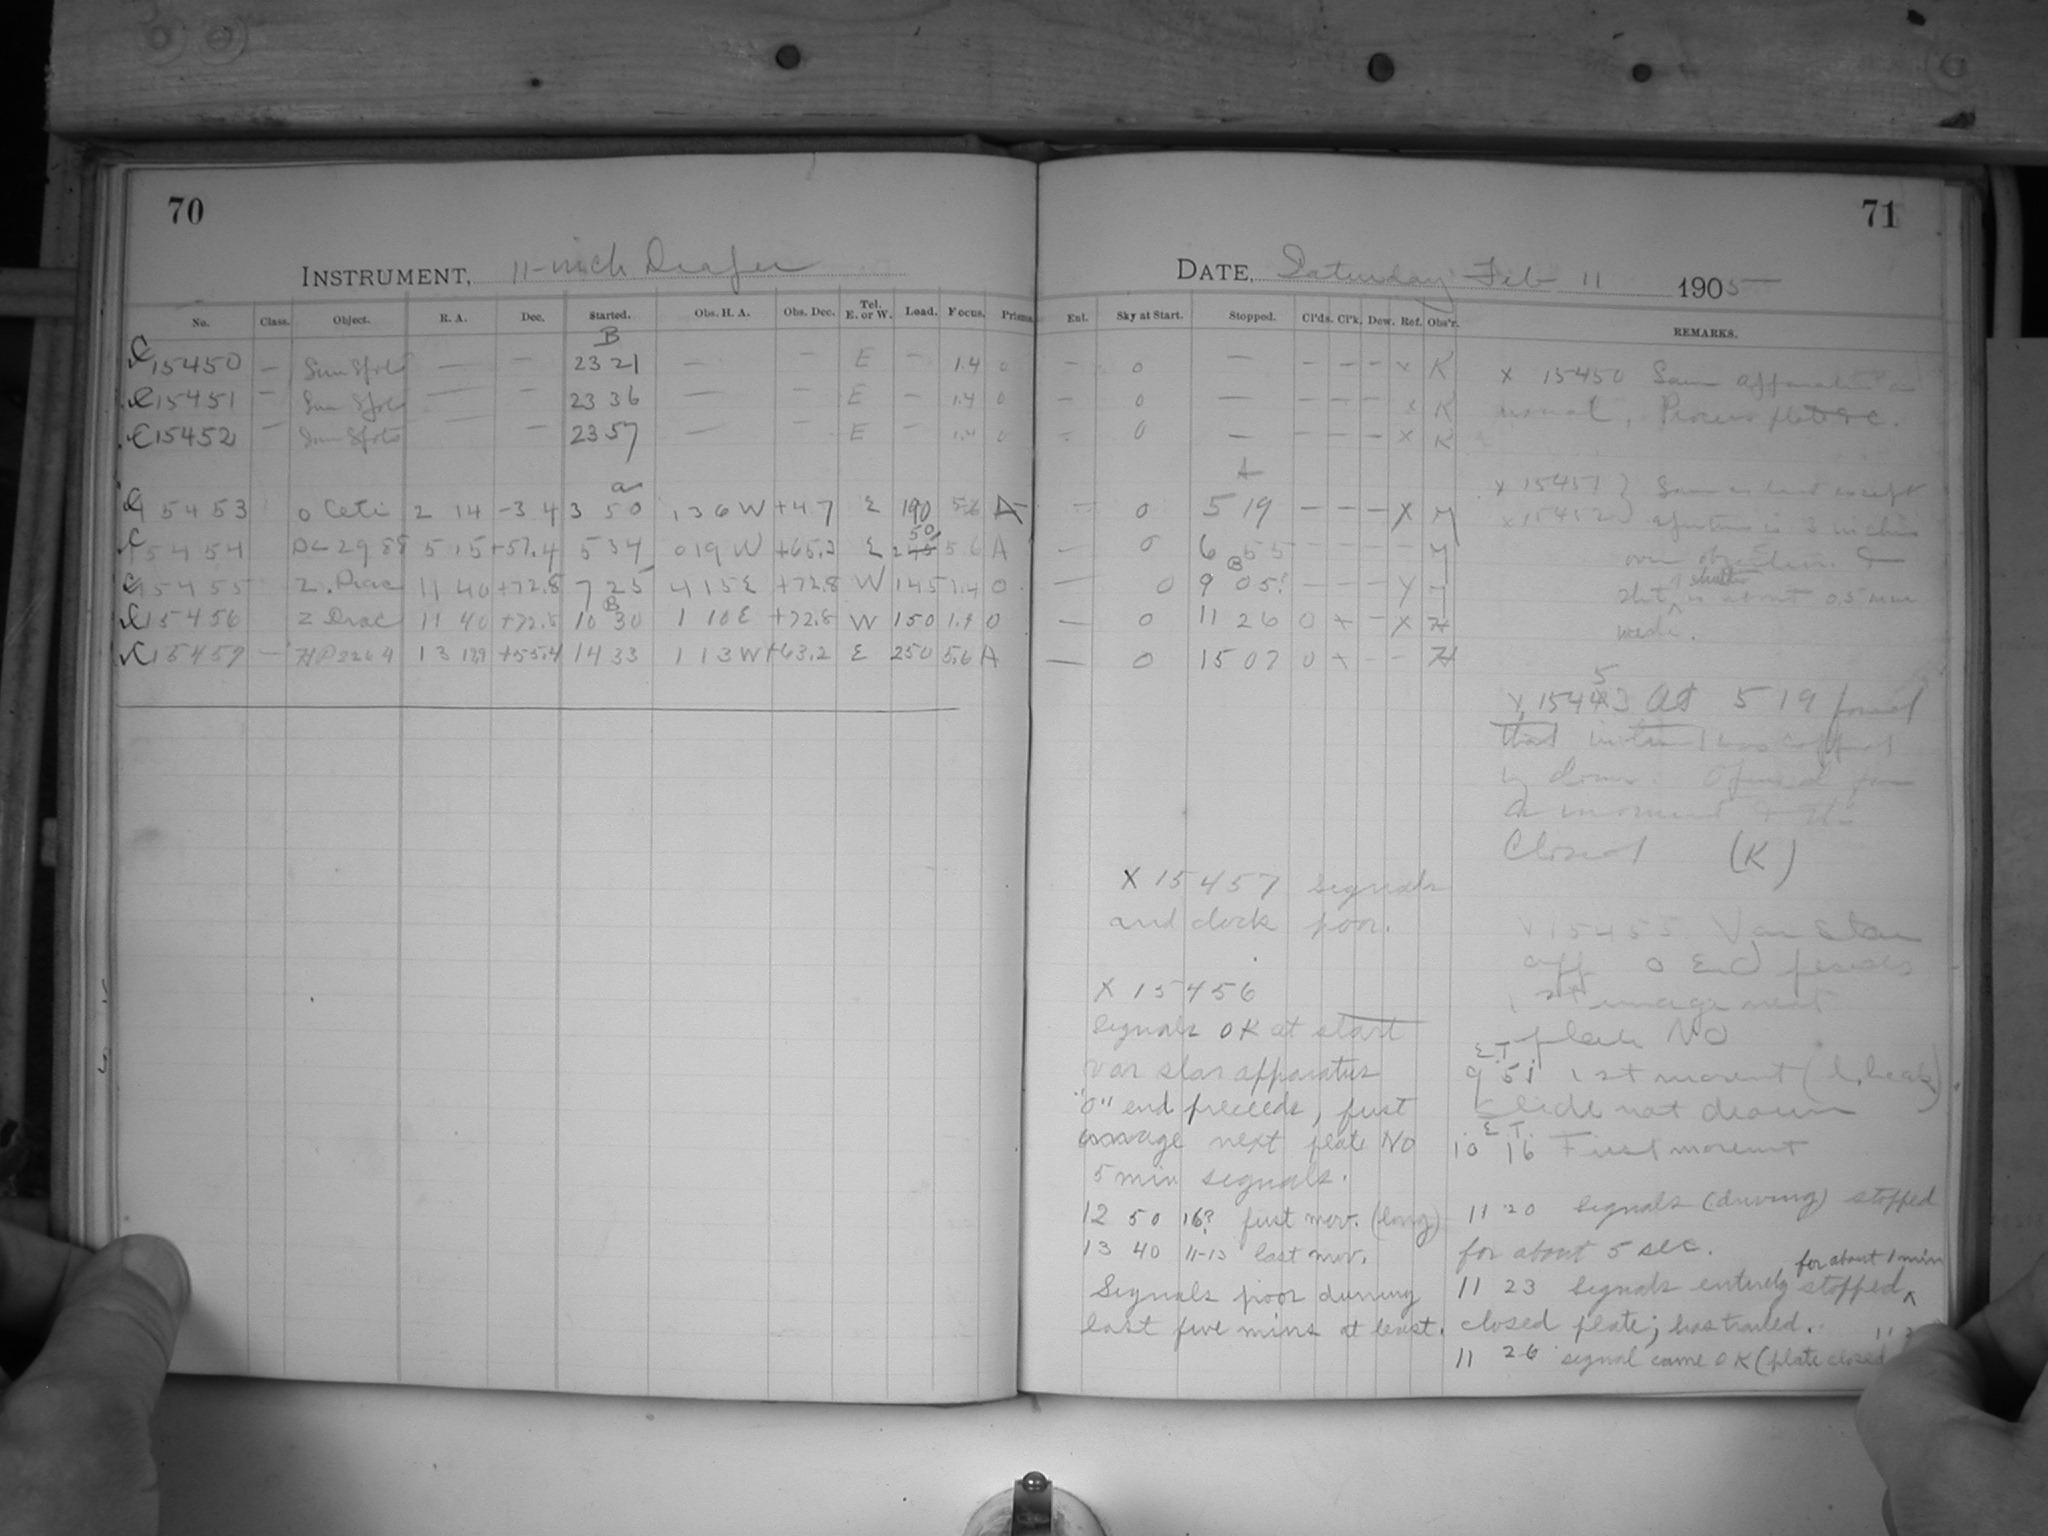 70
INSTRUMENT, 11-inch Draper
No. Class. Object. R. A. Dec. Started. Obs. H. A. Obs. Dec. Tel. E. or W. Load. Focus. Prisms
B
C 15450 — Sun Spots — — 23 21 — — E — 1.4 0
C 15451 — Sun Spots — — 23 36 — — E — 1.4 0
C 15452 — Sun Spots — — 23 57 — — E — 1.4 0
C 15453 o Ceti 2 14 -3 4 3 50 1 36 W +4.7 E 190 5.6 A
50
C 15454 5 15 +57.4 5 34 0 19 W +65.2 E 5.6 A
C 15455 Z. Drac 11 40 +72.8 7 25 4 15 E +72.8 W 145 1.4 0
B
C 15456 Z Drac 11 40 +72.8 10 30 1 10 E +72.8 W 150 1.4 0
C 15457 — HP 3264 13 +55.4 14 33 1 13 W +63.2 E 250 5.6 A
71
DATE, Saturday Feb 11 1905
Ext. Sky at Start. Stopped. Cl'ds. Cl'k. Dew. Ref. Obs'r. REMARKS.
— 0 — — — — x K
— 0 — — — — x K
— 0 — — — — x K
— 0 5 19 — — — X M
— 0 6 55 — — — — M
B
— 0 9 05? — — — Y M
— 0 11 26 0 + — X H
— 0 15 07 0 + — — H
x 15450 Same apparatus as
usual, Process plate &c.
x 15451 } Same as last except
x 15452 } aperture is 3 inches
over objective. &
shutter
slit is about 0.5 mm
wide.
5
x 15443 At 5 19 found
that
by dome. Opened for
a moment & then
Closed (K)
x 15455 Var Star
app O End precedes
1st image next
plate NO
E.T.
9 51 1st movement
Slide not drawn
E.T.
10 16 First movement
11 20 Signals (driving) stopped
for about 5 sec.
for about 1 min
11 23 Signals entirely stopped ^
closed plate; has trailed.
11 26 signal came OK (plate closed
X 15457 signals
and clock poor.
X 15456
Signals OK at start
var star apparatus
"O" end preceeds, first
image next plate NO
5 min signals.
12 50 16? first mov. (long)
13 40 11-13 last mov.
Signals poor during
last five mins at least.